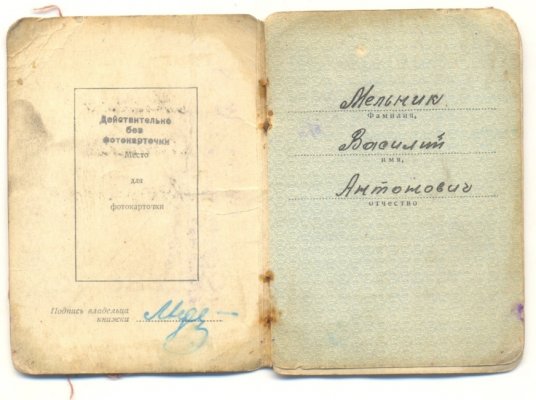 Действительно
без
фотокарточки
Место
для
фотокарточки
Подпись владельца
книжки
Мельник
Фамилия,
Василий
имя,
Антонович
отчество